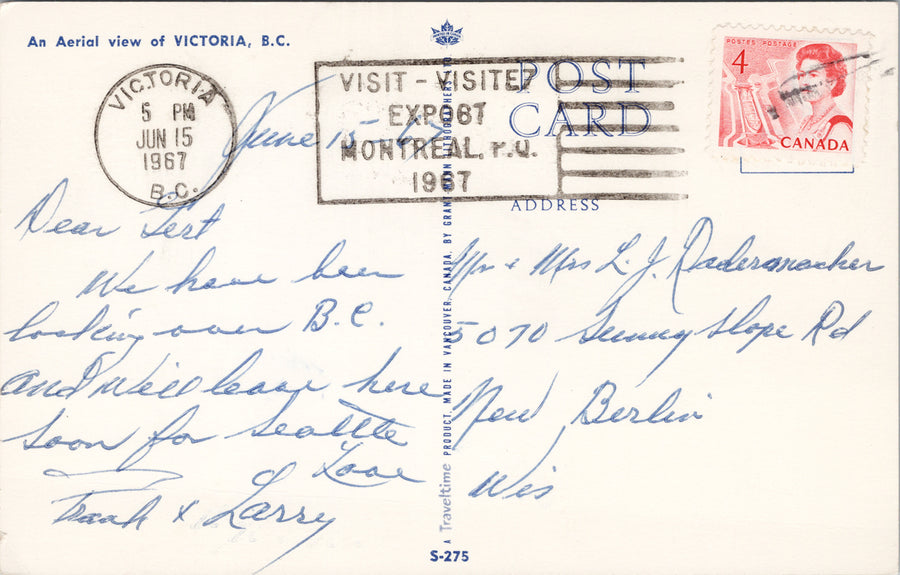 An Aerial view of VICTORIA, B.C.
VICTORIA
5 PM
JUN 15
1967
B.C.
VISIT - VISITEZ
EXPO67
MONTREAL, P.Q.
1967
POST
CARD
ADDRESS
POSTES POSTAGE
4
CANADA
June 15-67
Dear Gert
We have been
looking over B.C.
and will leave here
soon for Seattle
Love
Frank & Larry
Mr + Mrs L. J. Radermacher
5070 Sunny slope Rd
New Berlin
Wis
A Traveltime PRODUCT, MADE IN VANCOUVER, CANADA, BY GRANT-MANN LITHOGRAPHERS LTD.
S-275